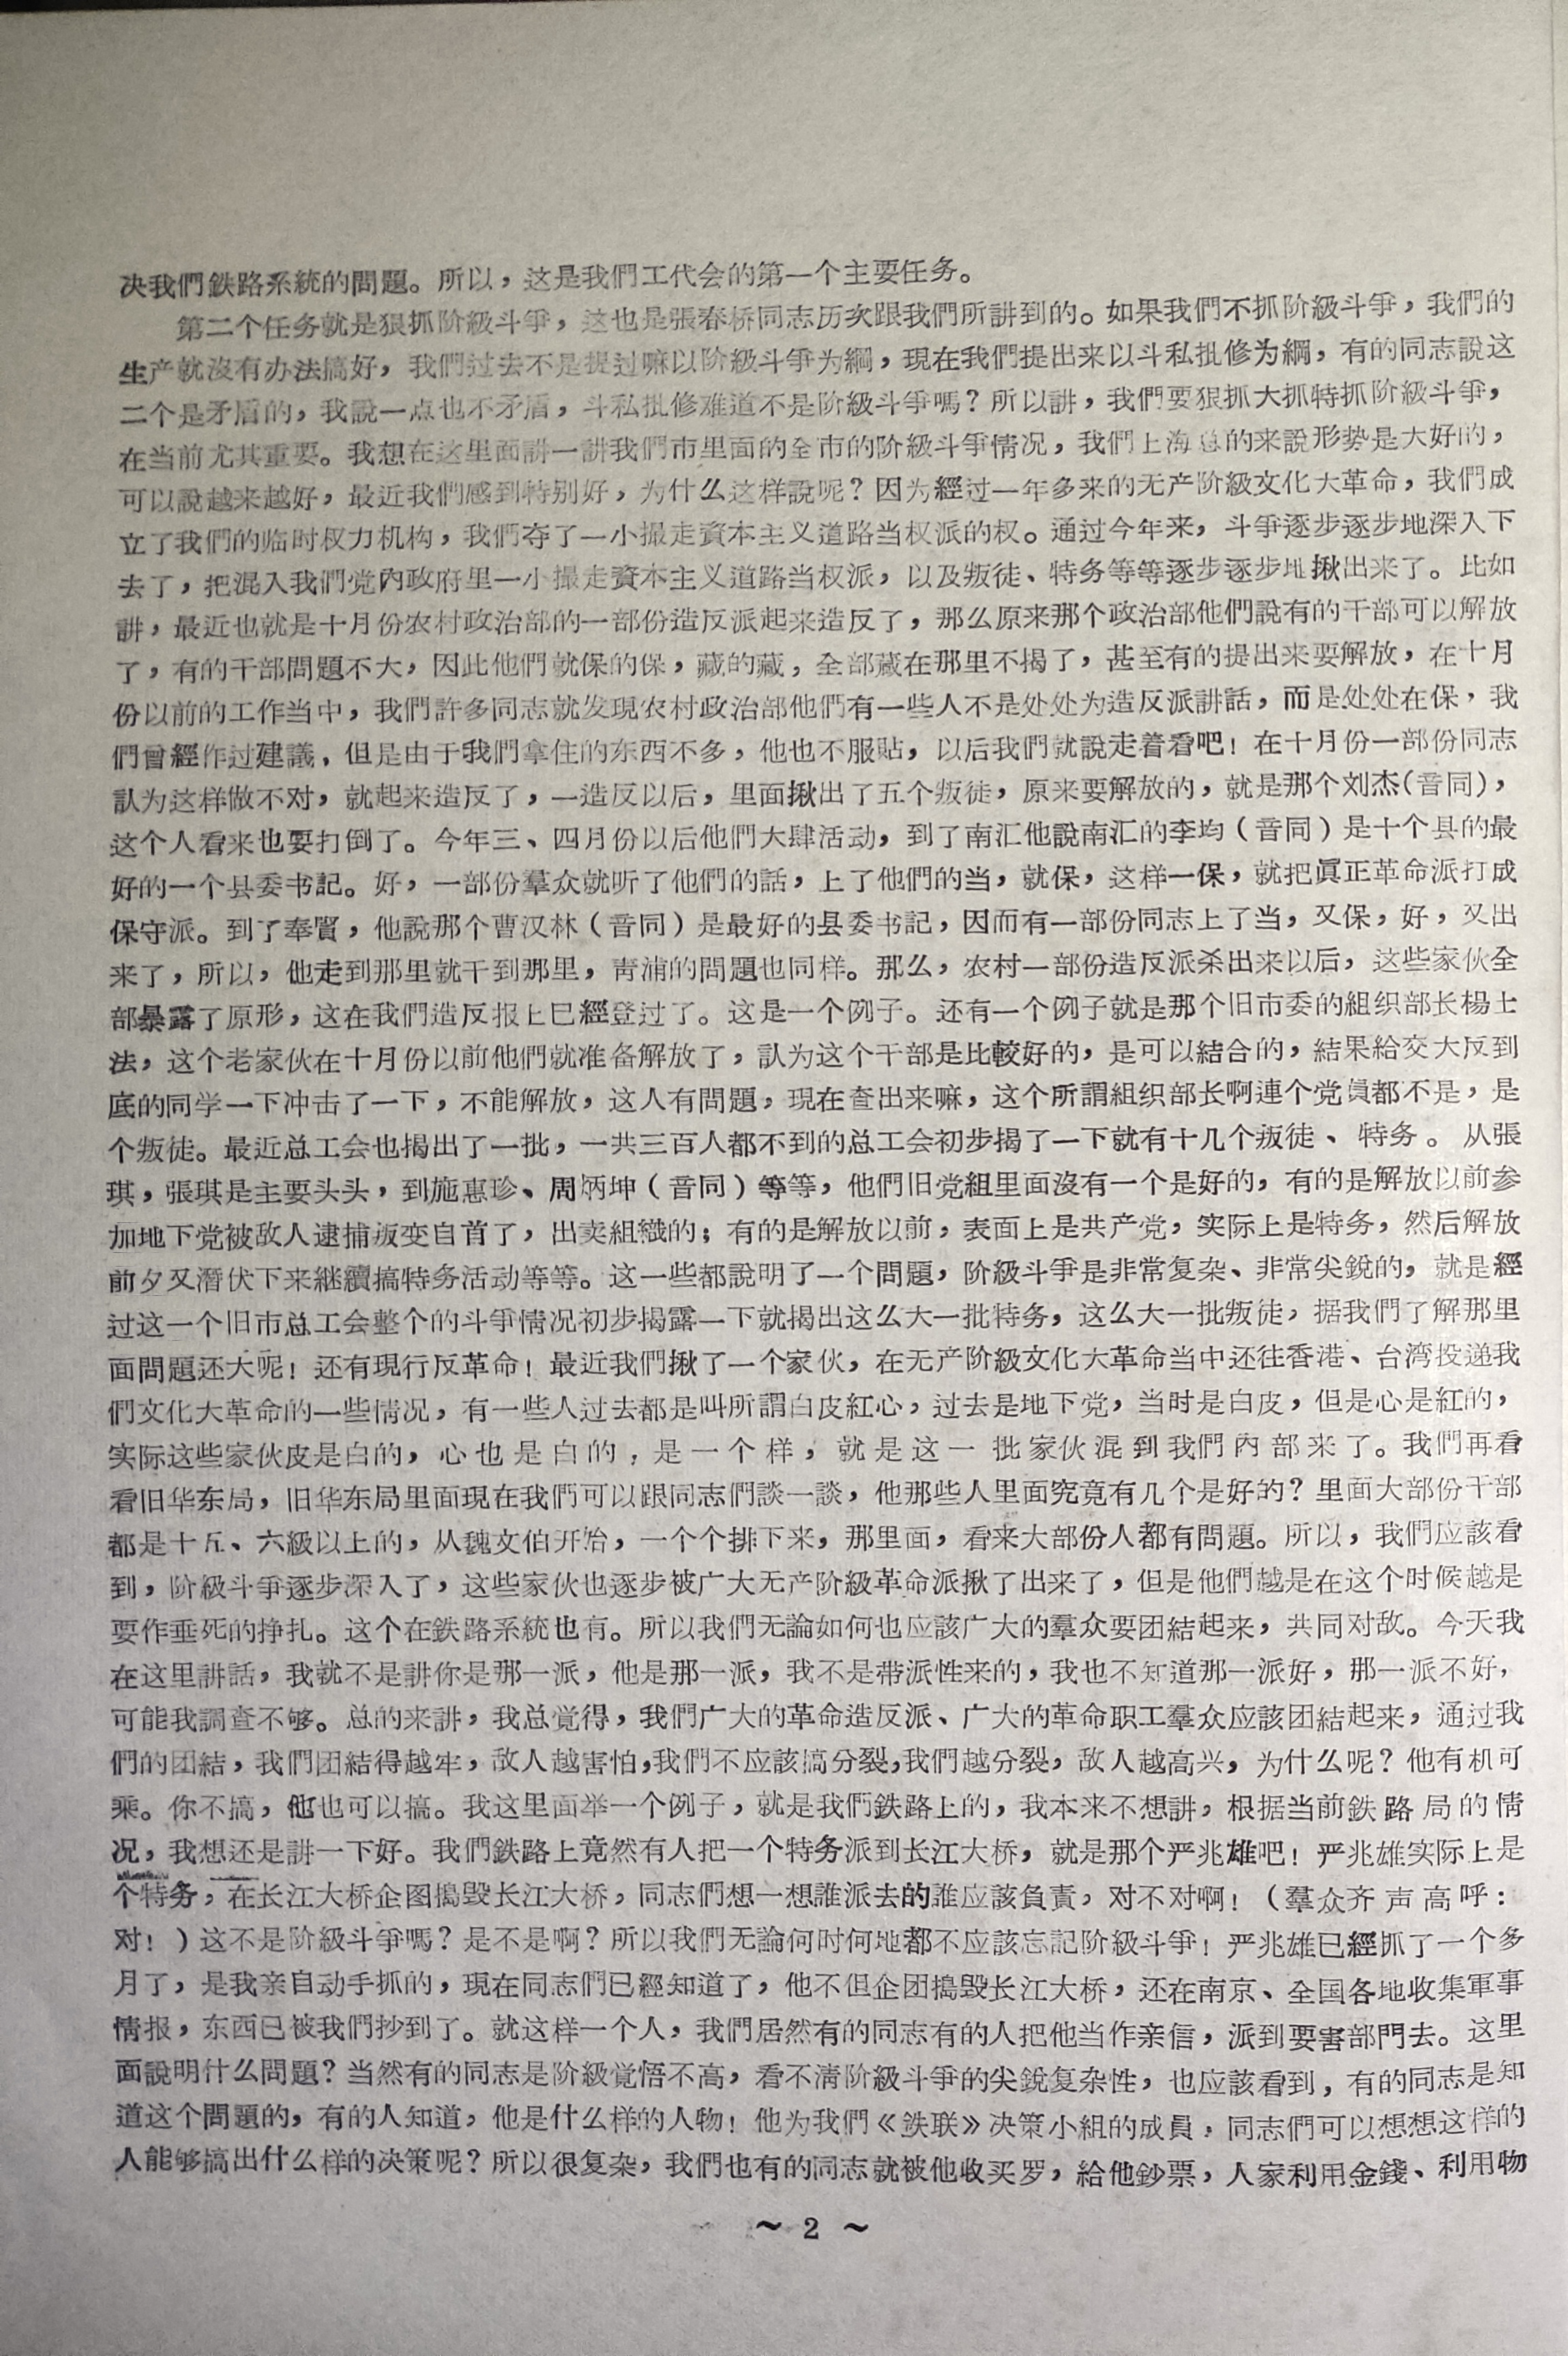 决我們鉄路系統的問題。所以，这是我們工代会的第一个主要任务。
第二个任务就是狠抓阶級斗爭，这也是張春桥同志历次跟我們所講到的。如果我們不抓阶級斗爭，我們的
生产就沒有办法搞好，我們过去不是提过嘛以阶級斗爭为綱，現在我們提出来以斗私批修为綱，有的同志說这
二个是矛盾的，我說一点也不矛盾，斗私批修难道不是阶級斗爭嗎？所以講，我們要狠抓大抓特抓阶級斗爭，
在当前尤其重要。我想在这里面講一講我們市里面的全市的阶級斗爭情况，我們上海总的来說形势是大好的，
可以說越来越好，最近我們感到特别好，为什么这样說呢？因为經过一年多来的无产阶級文化大革命，我們成
立了我們的临时权力机构，我們夺了一小撮走資本主义道路当权派的权。通过今年来，斗爭逐步逐步地深入下
去了，把混入我們党內政府里一小撮走資本主义道路当权派，以及叛徒、特务等等逐步逐步地揪出来了。比如
講，最近也就是十月份农村政治部的一部份造反派起来造反了，那么原来那个政治部他們說有的干部可以解放
了，有的干部問題不大，因此他們就保的保，藏的藏，全部藏在那里不揭了，甚至有的提出来要解放，在十月
份以前的工作当中，我們許多同志就发現农村政治部他們有一些人不是处处为造反派講話，而是处处在保，我
們曾經作过建議，但是由于我們拿住的东西不多，他也不服貼，以后我們就說走着看吧！在十月份一部份同志
認为这样做不对，就起来造反了，一造反以后，里面揪出了五个叛徒，原来要解放的，就是那个刘杰(音同)，
这个人看来也要打倒了。今年三、四月份以后他們大肆活动，到了南汇他說南汇的李均（音同）是十个县的最
好的一个县委书記。好，一部份羣众就听了他們的話，上了他們的当，就保，这样一保，就把眞正革命派打成
保守派。到了奉賢，他說那个曹汉林（音同）是最好的县委书記，因而有一部份同志上了当，又保，好，又出
来了，所以，他走到那里就干到那里，靑浦的問題也同样。那么，农村一部份造反派杀出来以后，这些家伙全
部暴露了原形，这在我們造反报上巳經登过了。这是一个例子。还有一个例子就是那个旧市委的組织部长楊士
法，这个老家伙在十月份以前他們就准备解放了，認为这个干部是比較好的，是可以結合的，結果給交大反到
底的同学一下冲击了一下，不能解放，这人有問題，現在查出来嘛，这个所謂組织部长啊連个党員都不是，是
个叛徒。最近总工会也揭出了一批，一共三百人都不到的总工会初步揭了一下就有十几个叛徒、特务。从張
琪，張琪是主要头头，到施惠珍、周炳坤（音同）等等，他們旧党組里面沒有一个是好的，有的是解放以前参
加地下党被敌人逮捕叛变自首了，出卖組織的；有的是解放以前，表面上是共产党，实际上是特务，然后解放
前夕又潛伏下来継續搞特务活动等等。这一些都說明了一个問題，阶級斗爭是非常复杂、非常尖銳的，就是經
过这一个旧市总工会整个的斗爭情况初步揭露一下就揭出这么大一批特务，这么大一批叛徒，据我們了解那里
面問題还大呢！还有現行反革命！最近我們揪了一个家伙，在无产阶級文化大革命当中还往香港、台湾投递我
們文化大革命的一些情况，有一些人过去都是叫所謂白皮紅心，过去是地下党，当时是白皮，但是心是紅的，
实际这些家伙皮是白的，心也是白的，是一个样，就是这一批家伙混到我們內部来了。我們再看
看旧华东局，旧华东局里面現在我們可以跟同志們談一談，他那些人里面究竟有几个是好的？里面大部份干部
都是十五、六級以上的，从魏文伯开始，一个个排下来，那里面，看来大部份人都有問題。所以，我們应該看
到，阶級斗爭逐步深入了，这些家伙也逐步被广大无产阶級革命派揪了出来了，但是他們越是在这个时候越是
要作垂死的挣扎。这个在鉄路系統也有。所以我們无論如何也应該广大的羣众要团結起来，共同对敌。今天我
在这里講話，我就不是講你是那一派，他是那一派，我不是带派性来的，我也不知道那一派好，那一派不好，
可能我調查不够。总的来講，我总觉得，我們广大的革命造反派、广大的革命职工羣众应該团結起来，通过我
們的团結，我們团結得越牢，敌人越害怕，我們不应該搞分裂，我們越分裂，敌人越高兴，为什么呢？他有机可
乘。你不搞，他也可以搞。我这里面举一个例子，就是我們鉄路上的，我本来不想講，根据当前鉄路局的情
况，我想还是講一下好。我們鉄路上竟然有人把一个特务派到长江大桥，就是那个严兆雄吧！严兆雄实际上是
个特务，在长江大桥企图搗毀长江大桥，同志們想一想誰派去的誰应該負責，对不对啊！（羣众齐声高呼：
对！）这不是阶級斗爭嗎？是不是啊？所以我們无論何时何地都不应該忘記阶級斗爭！严兆雄已經抓了一个多
月了，是我亲自动手抓的，現在同志們已經知道了，他不但企団搗毀长江大桥，还在南京、全国各地收集軍事
情报，东西已被我們抄到了。就这样一个人，我們居然有的同志有的人把他当作亲信，派到要害部門去。这里
面說明什么問題？当然有的同志是阶級觉悟不高，看不清阶級斗爭的尖銳复杂性，也应該看到，有的同志是知
道这个問題的，有的人知道，他是什么样的人物！他为我們《鉄联》决策小組的成員，同志們可以想想这样的
人能够搞出什么样的决策呢？所以很复杂，我們也有的同志就被他收买罗，給他鈔票，人家利用金錢、利用物
～ 2 ～